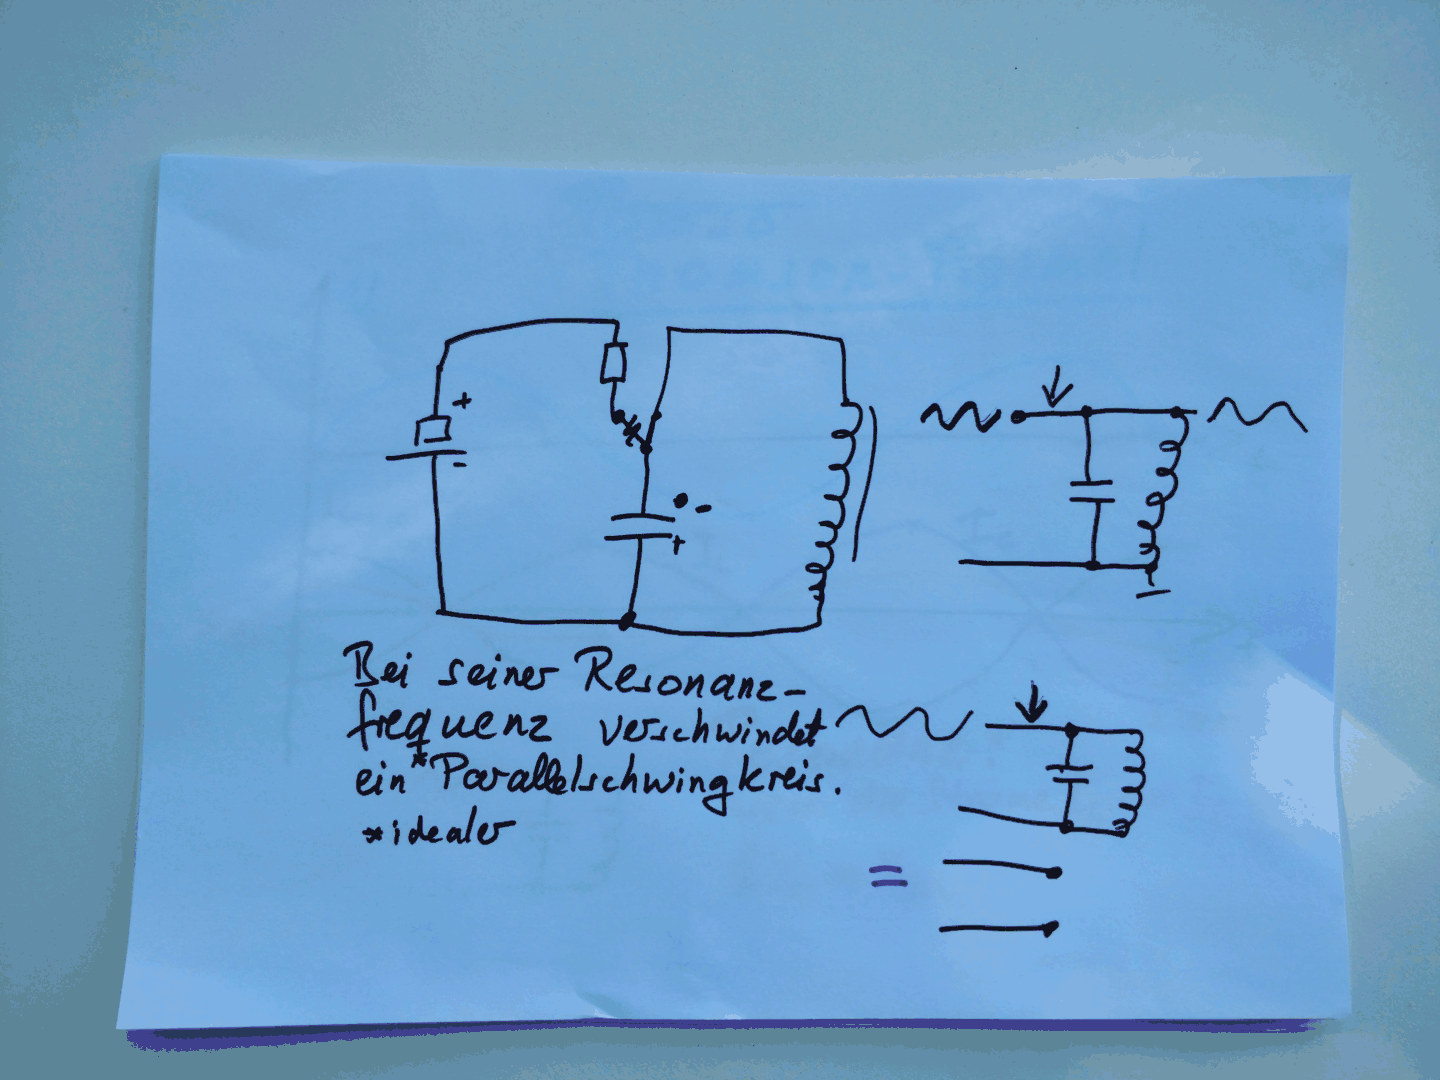 +
-
-
+
Bei seiner Resonanz-
frequenz verschwindet
ein * Parallelschwingkreis.
* idealer
=